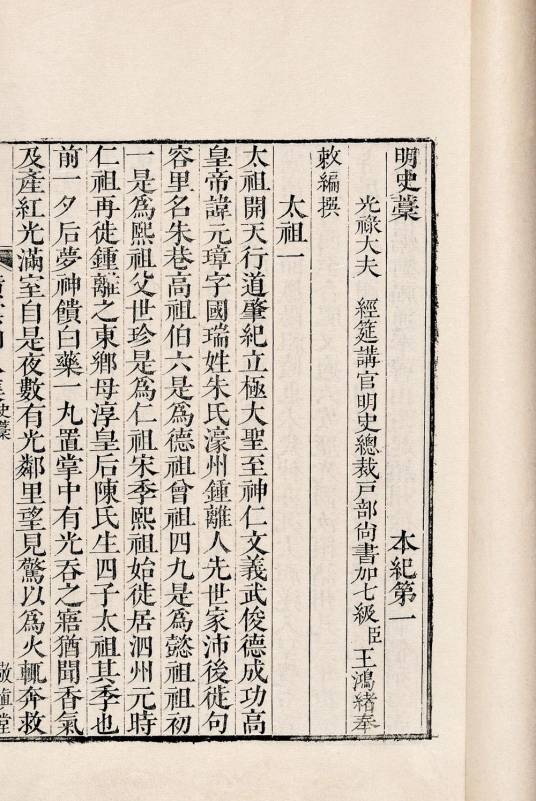 明史藁 本紀第一
光祿大夫 經筵講官明史總裁戸部尚書加七級臣王鴻緒奉
敕編撰
太祖一
太祖開天行道肇紀立極大聖至神仁文義武俊德成功高
皇帝諱元璋字國瑞姓朱氏濠州鍾離人先世家沛後徙句
容里名朱巷高祖伯六是爲德祖曾祖四九是爲懿祖祖初
一是爲熙祖父世珍是爲仁祖宋季熙祖始徙居泗州元時
仁祖再徙鍾離之東鄉母淳皇后陳氏生四子太祖其季也
前一夕后夢神饋白藥一丸置掌中有光吞之寤猶聞香氣
及產紅光滿室自是夜數有光鄰里望見驚以爲火輒奔救
史藁
敬慎堂